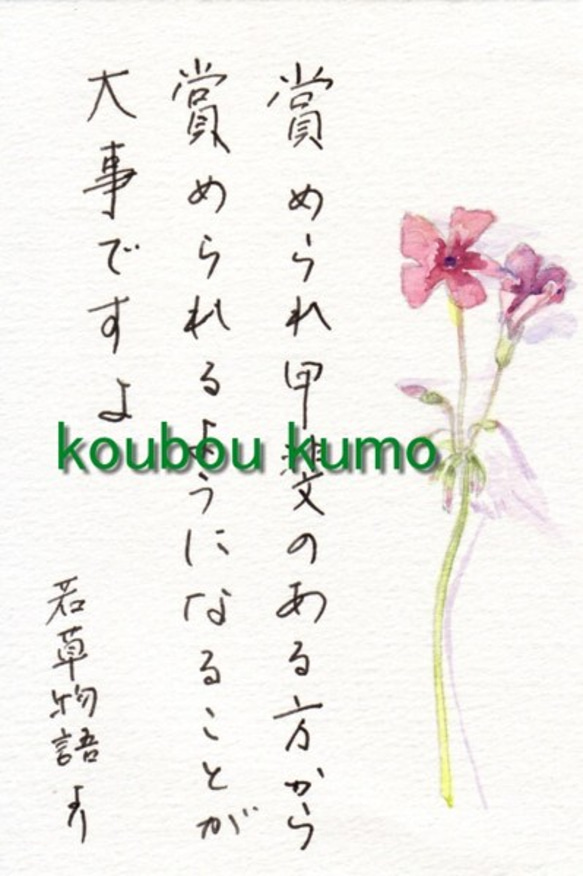 賞められ甲斐のある方から
賞められるようになることが
大事ですよ
若草物語より
koubou kumo